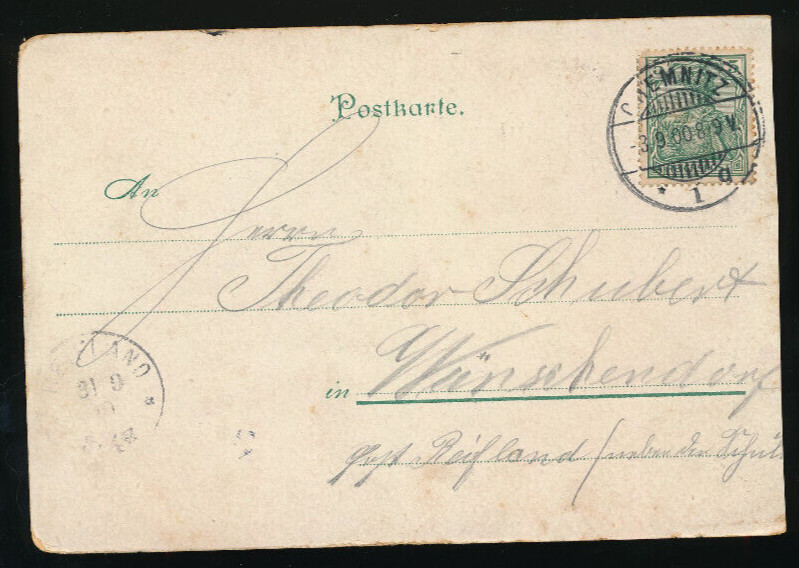 Postkarte.
CHEMNITZ
-3.9.00.8-9V.
* 1 g
An
Herrn
Theodor Schubert
in Wünschendorf
Post Reifland / neben der Schule
REIFLAND
*